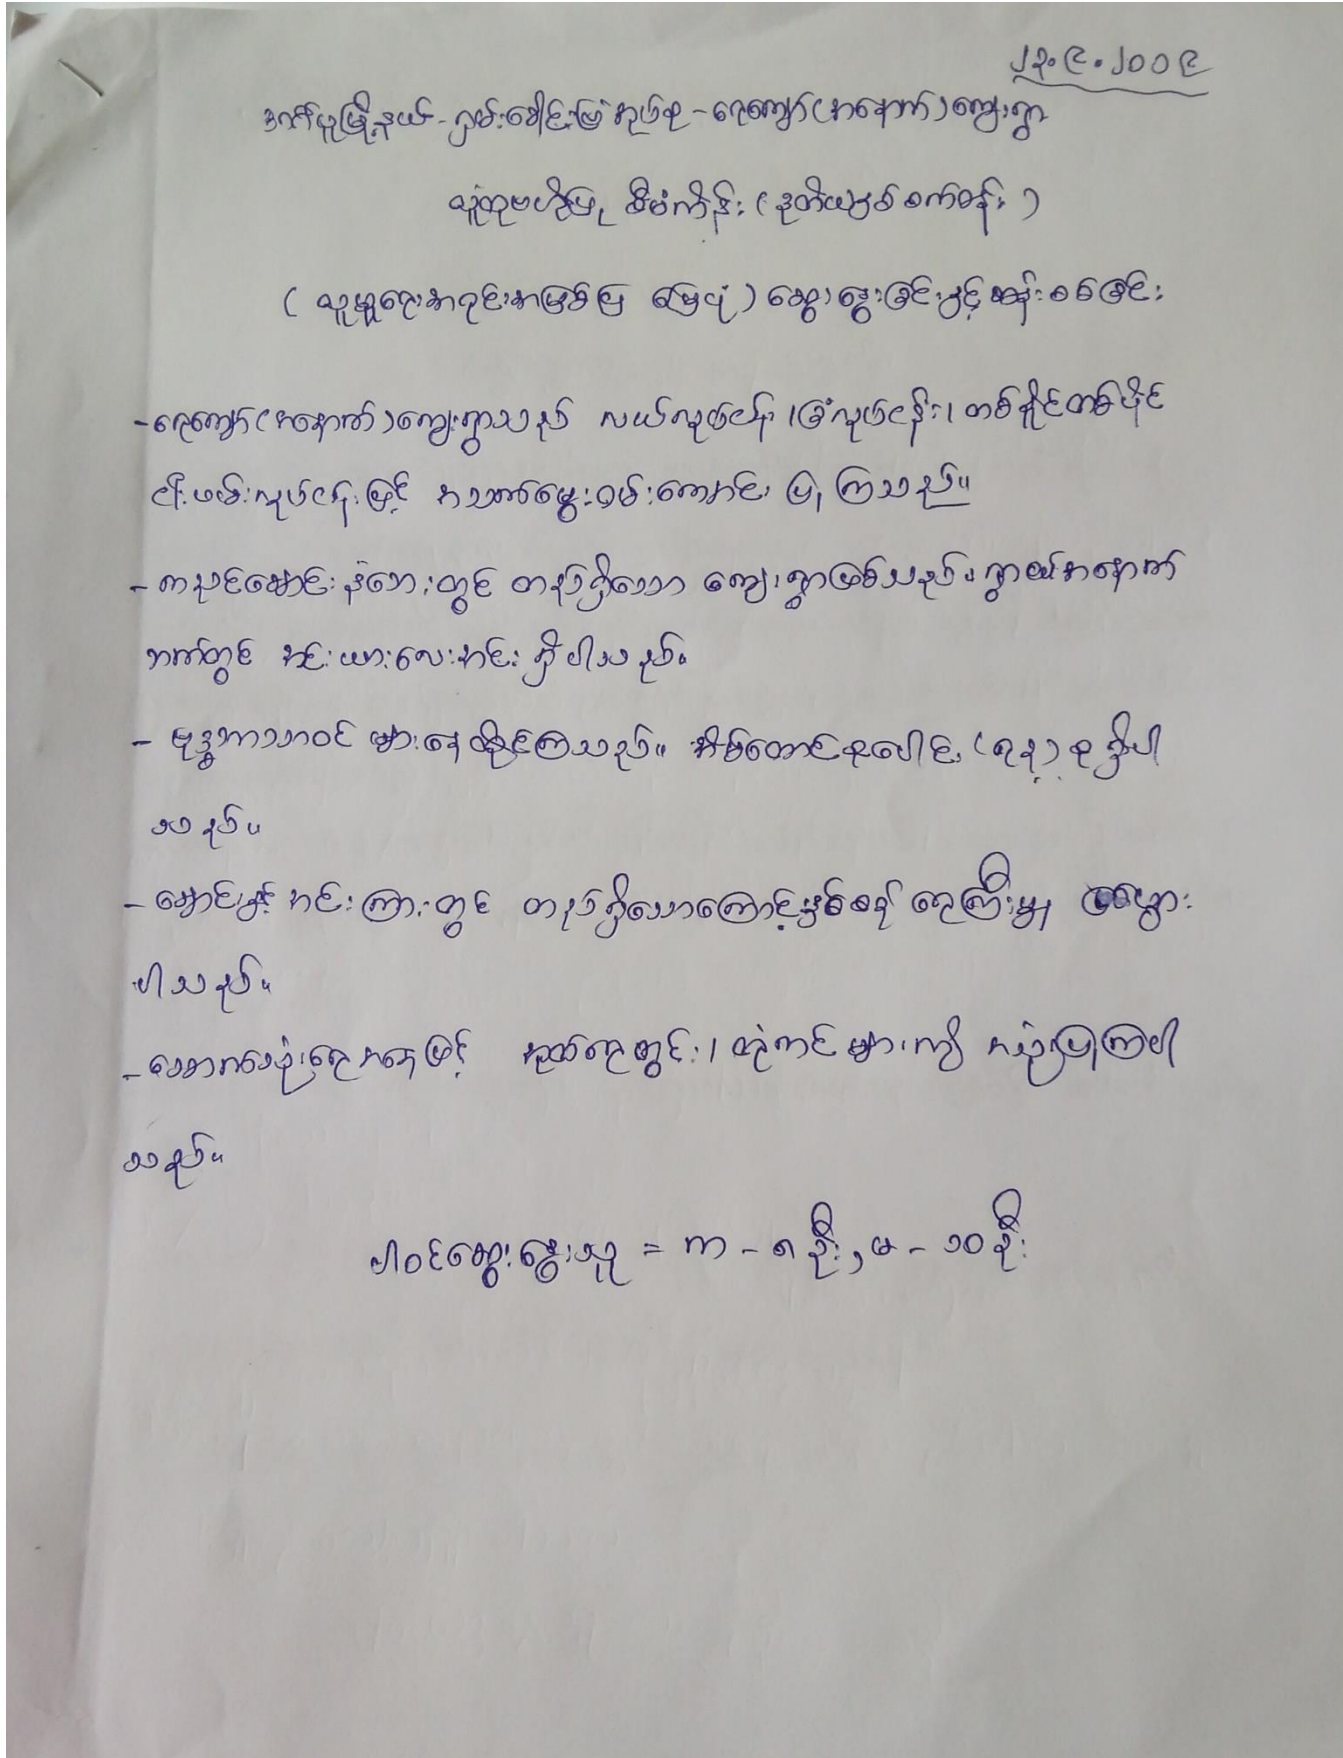 ၂၃.၉.၂၀၀၉
ဒလပိုမြို့နယ် - ရှမ်းခေါင်းမြုံအုပ်စု - ရေကျော်(အနောက်)ကျေးရွာ
လူထုဗဟိုပြု စီမံကိန်း (ဒုတိယနှစ်စက်ဝန်း)
(လူမှုရေးအရင်းအမြစ်ပြ မြေပုံ) ဆွေးနွေးခြင်းနှင့်ဆန်းစစ်ခြင်း
- ရေကျော်(အနောက်)ကျေးရွာသည် လယ်လုပ်ငန်း၊ ခြံလုပ်ငန်း၊ တစ်နိုင်တစ်ပိုင်
ငါးဖမ်းလုပ်ငန်းဖြင့် အသက်မွေးဝမ်းကျောင်း ပြုကြသည်။
- ကညင်ချောင်းနံဘေးတွင် တည်ရှိသော ကျေးရွာဖြစ်သည်။ ရွာ၏အနောက်
ဘက်တွင် အင်းယားလေးအင်း ရှိပါသည်။
- ဗုဒ္ဓဘာသာဝင် များနေထိုင်ကြသည်။ အိမ်ထောင်စုပေါင်း (၇၃) စု ရှိပါ
သည်။
- ချောင်းနှင့် အင်းကြားတွင် တည်ရှိသောကြောင့်နှစ်စဉ် ရေကြီးမှု များ
ပါသည်။
- သောက်သုံးရေအနေဖြင့် အုတ်ရေတွင်း၊ တုံကင်များကို အသုံးပြုကြပါ
သည်။
ပါဝင်ဆွေးနွေးသူ = ကာ - ၈ ဦး, မ - ၁၀ ဦး